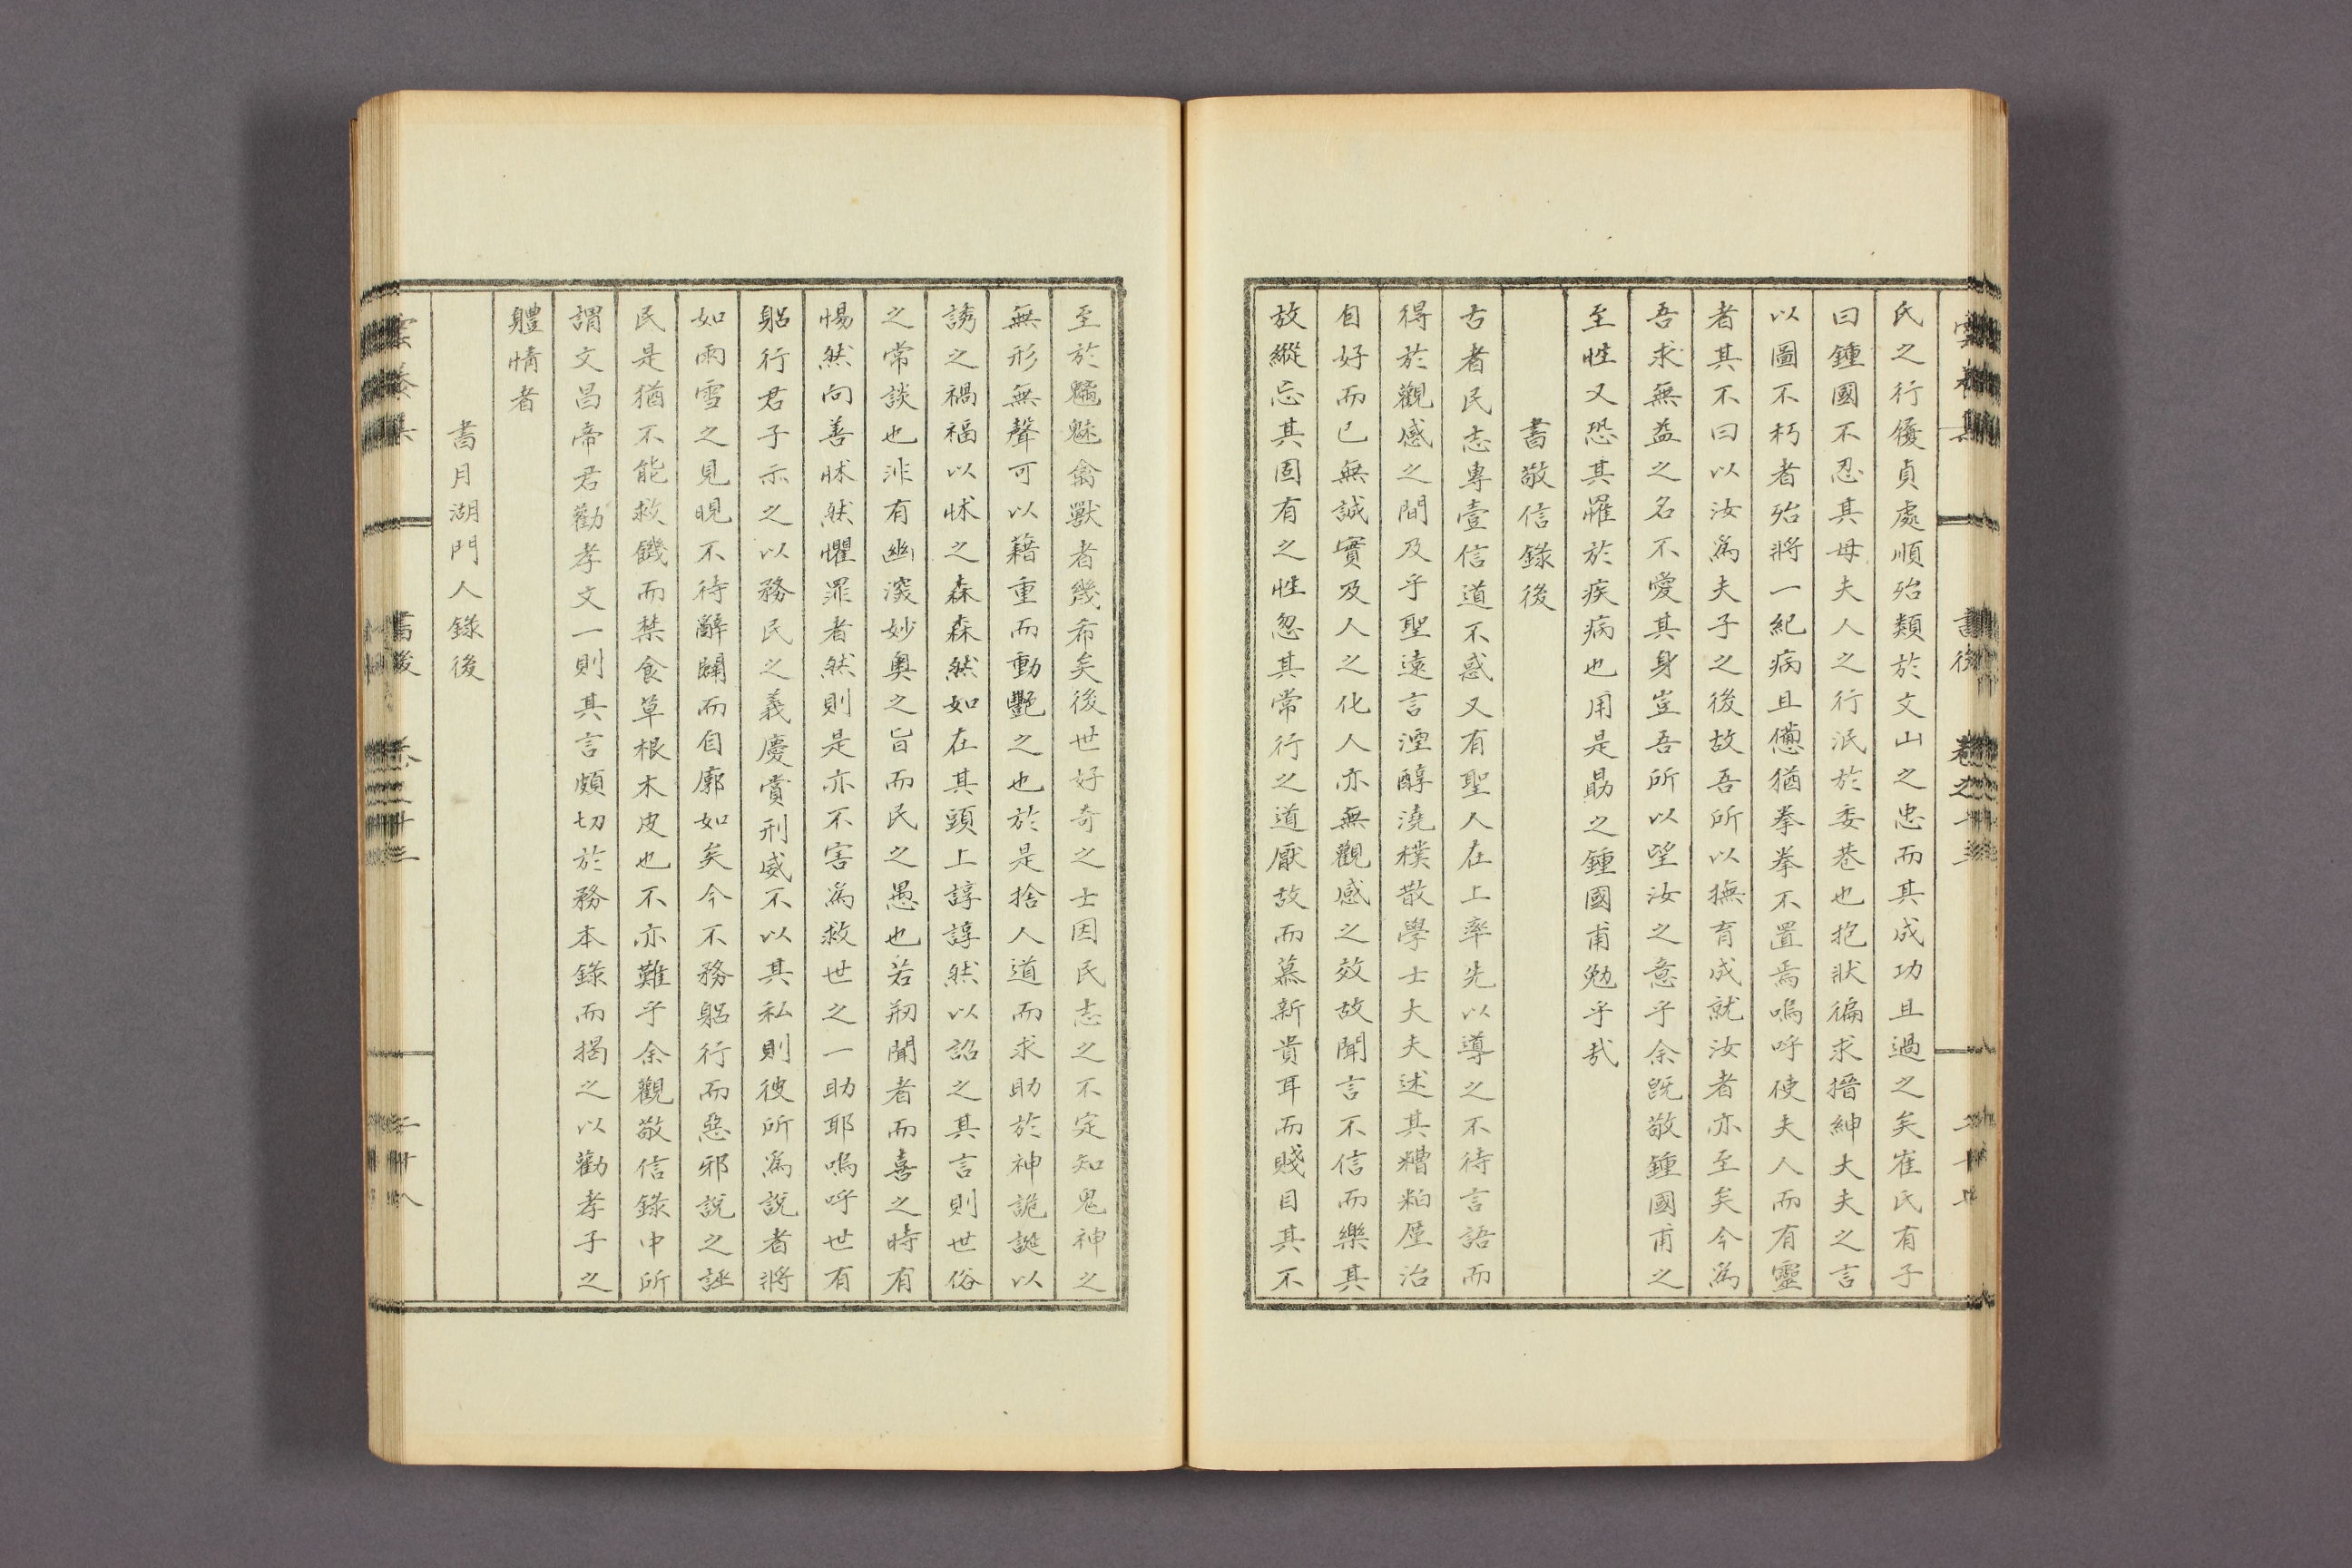 氏之行優貞處順殆類於文山之忠而其成功且過之矣崔氏有子
曰鍾國不忍其母夫人之行泯於委巷也抱狀徧求搢紳大夫之言
以圖不朽者殆將一紀病且憊猶拳拳不置焉嗚呼使夫人而有靈
者其不曰以汝爲夫子之後故吾所以撫育成就汝者亦至矣今爲
吾求無益之名不愛其身豈吾所以望汝之意乎余旣敬鍾國甫之
至性又恐其罹於疾病也用是勗之鍾國甫勉乎哉
書敬信錄後
古者民志專壹信道不惑又有聖人在上率先以導之不待言語而
得於觀感之間及乎聖遠言湮醇澆樸散學士大夫述其糟粕廑治
自好而已無誠實及人之化人亦無觀感之效故聞言不信而樂其
放縱忘其固有之性忽其常行之道厭故而慕新貴耳而賤目其不
至於魑魅禽獸者幾希矣後世好奇之士因民志之不定知鬼神之
無形無聲可以藉重而動艷之也於是捨人道而求助於神詭誕以
誘之禍福以怵之森森然如在其頭上諄諄然以詔之其言則世俗
之常談也非有幽深妙奧之旨而民之愚也若刱聞者而喜之時有
惕然向善怵然懼罪者然則是亦不害爲救世之一助耶嗚呼世有
躬行君子示之以務民之義慶賞刑威不以其私則彼所爲說者將
如雨雪之見晛不待辭闢而自廓如矣今不務躬行而惡邪說之誣
民是猶不能救饑而禁食草根木皮也不亦難乎余觀敬信錄中所
謂文昌帝君勸孝文一則其言頗切於務本錄而揭之以勸孝子之
軆情者
書月湖門人錄後
書後
二十八